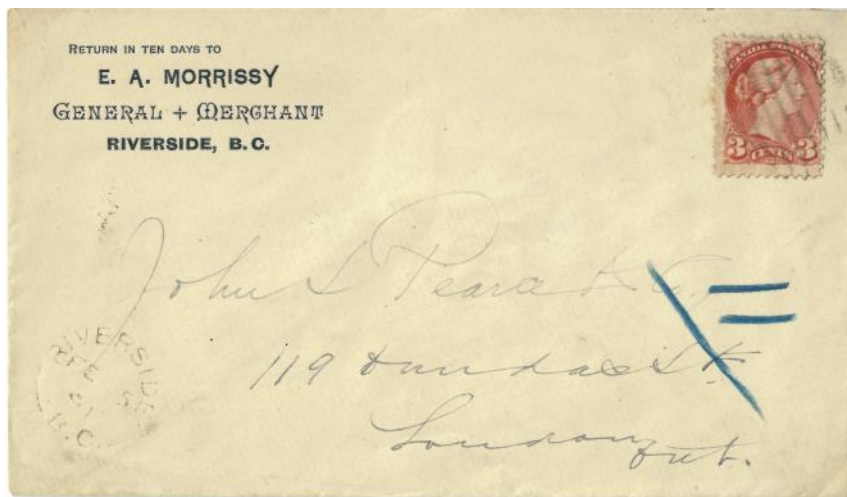 RETURN IN TEN DAYS TO
E. A. MORRISSY
GENERAL + MERCHANT
RIVERSIDE, B.C.
CANADA POSTAGE
3 CENTS 3
John S Pearce & Co,
119 Dundas St.
London
Ont.
RIVERSIDE
FE 5
91
B.C.